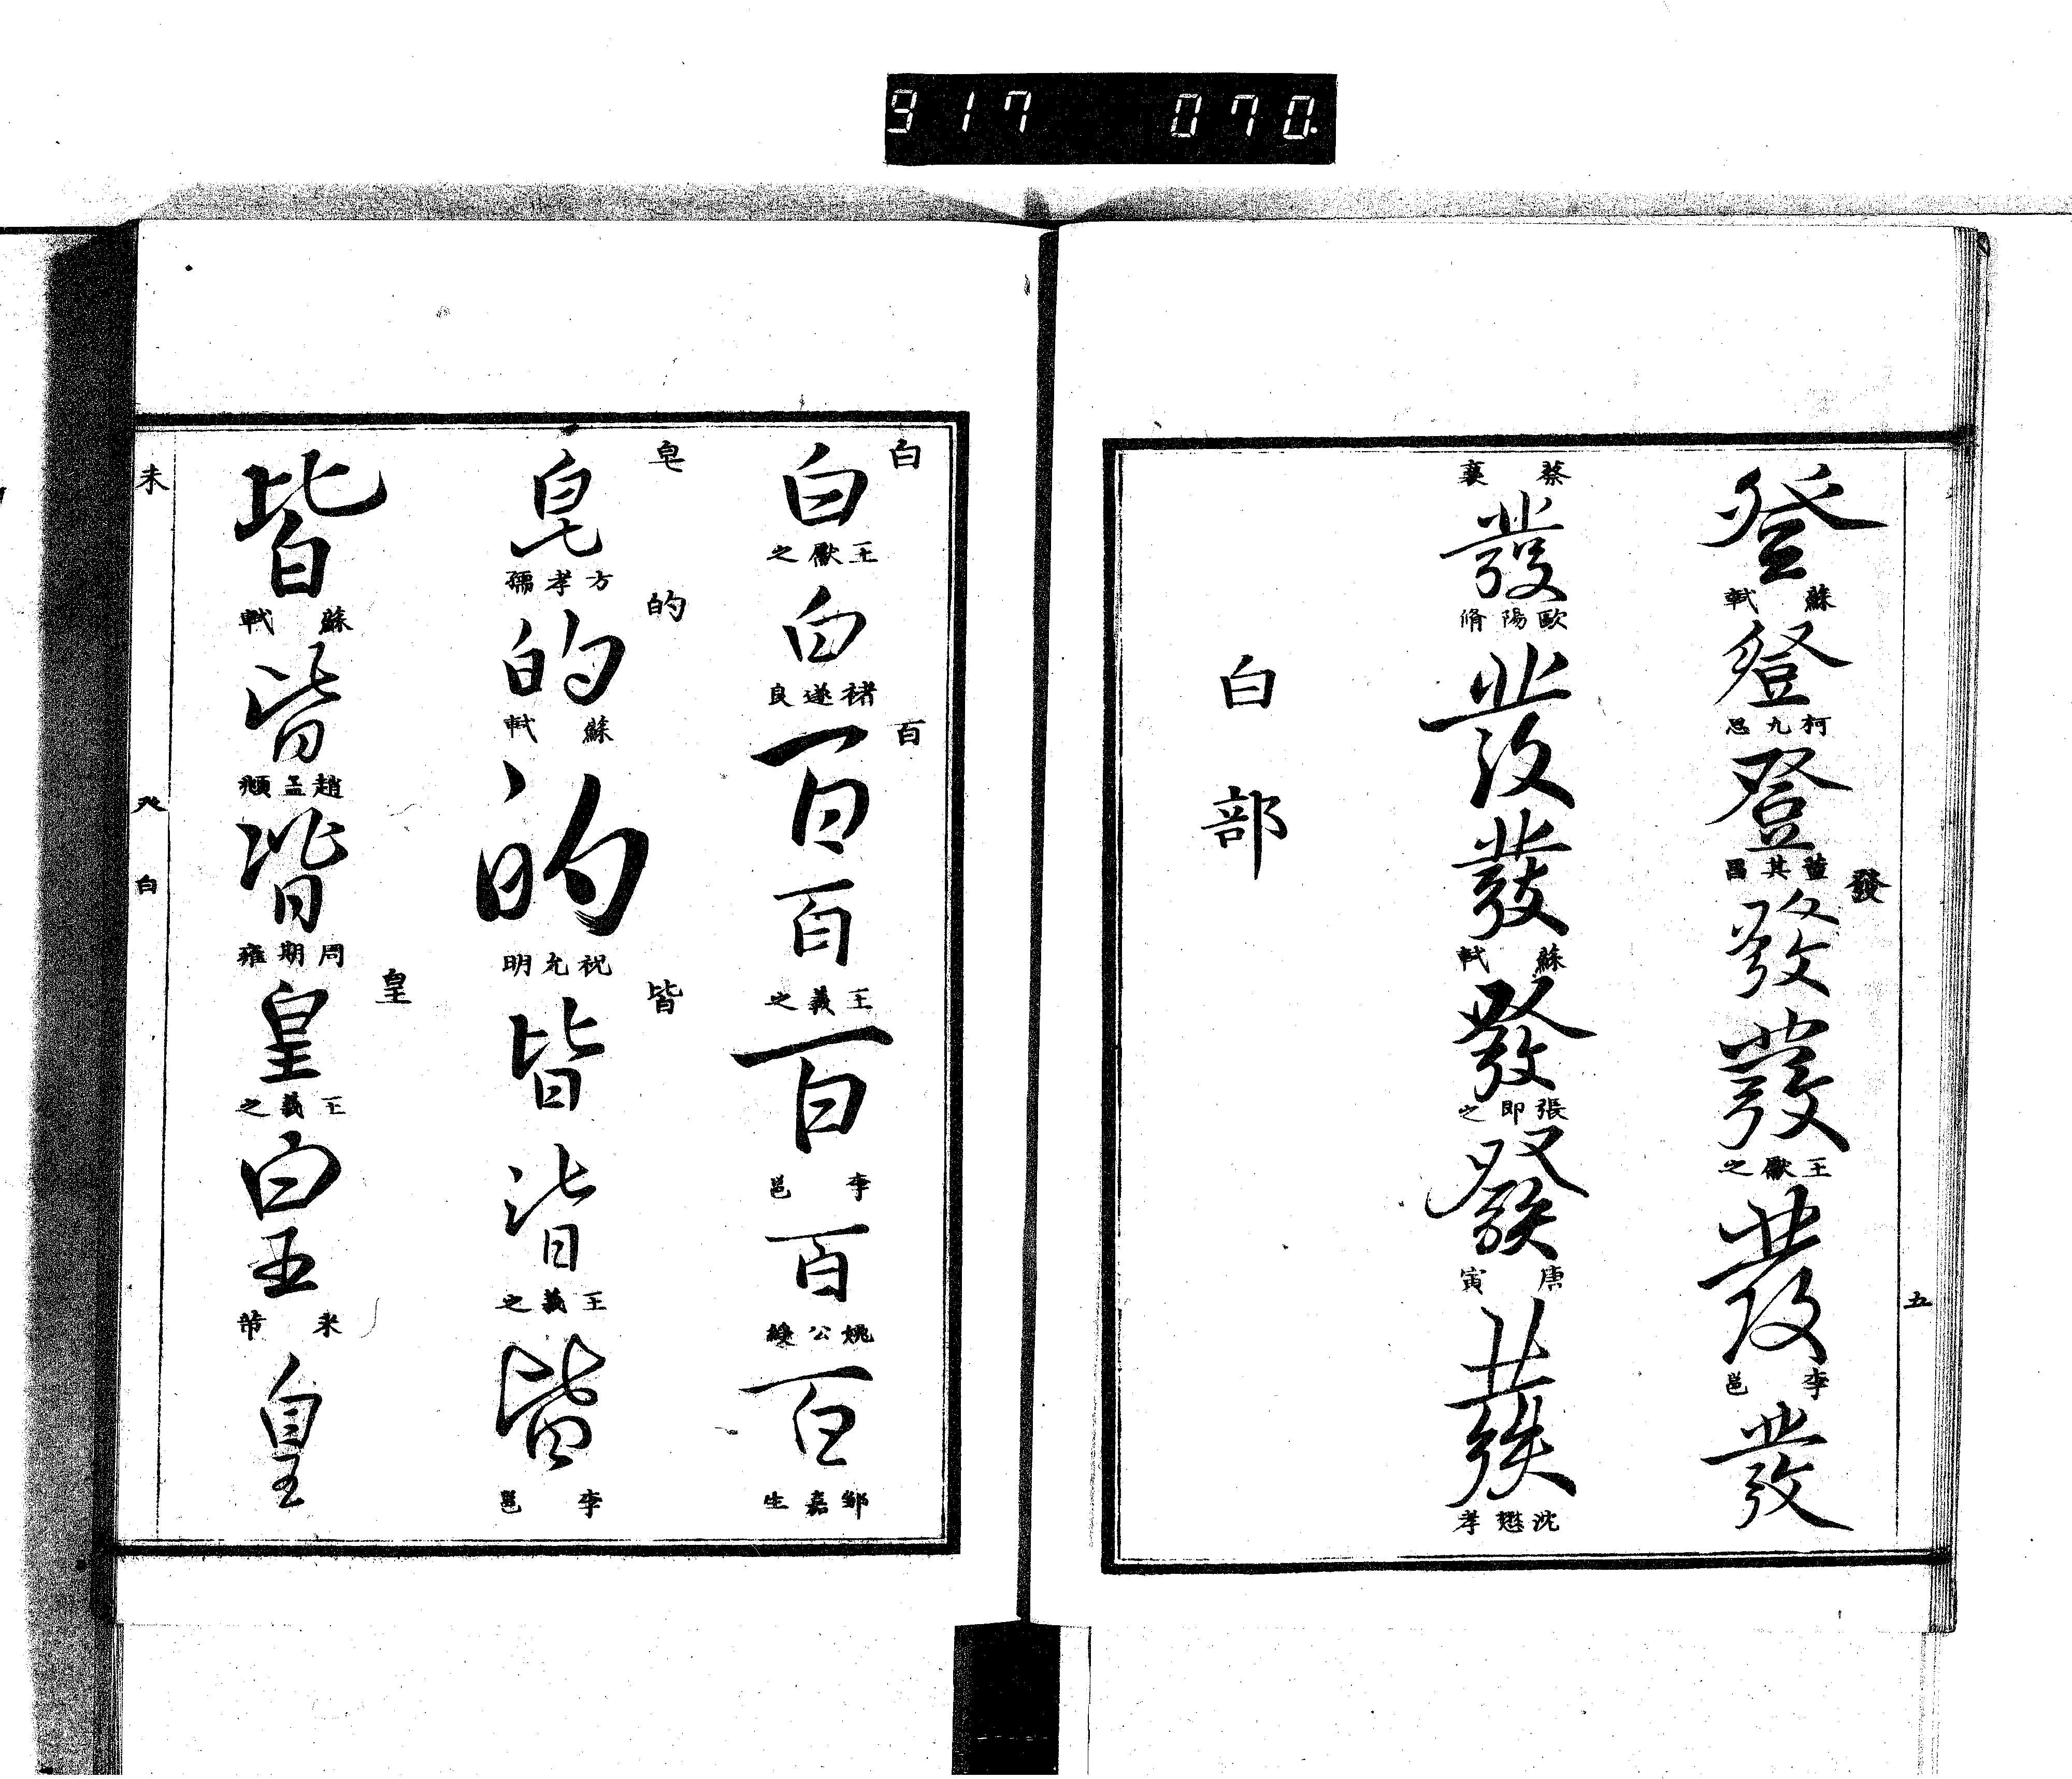 917 070.
登 蘇軾 登 柯九思 登 董其昌 發 發 發 王獻之 發 李邕 發
五
蔡襄 發 歐陽脩 發 發 蘇軾 發 張即之 發 唐寅 發 沈懋孝
白部
白 白 王獻之 白 褚遂良 百 百 百 王羲之 百 李邕 百 姚公綬 百 鄒嘉生
皂 皂 方孝孺 的 的 蘇軾 的 祝允明 皆 皆 皆 王羲之 皆 李邕
皆 蘇軾 皆 趙孟頫 皆 周期雍 皇 皇 王羲之 皇 米芾 皇
未 癶 白